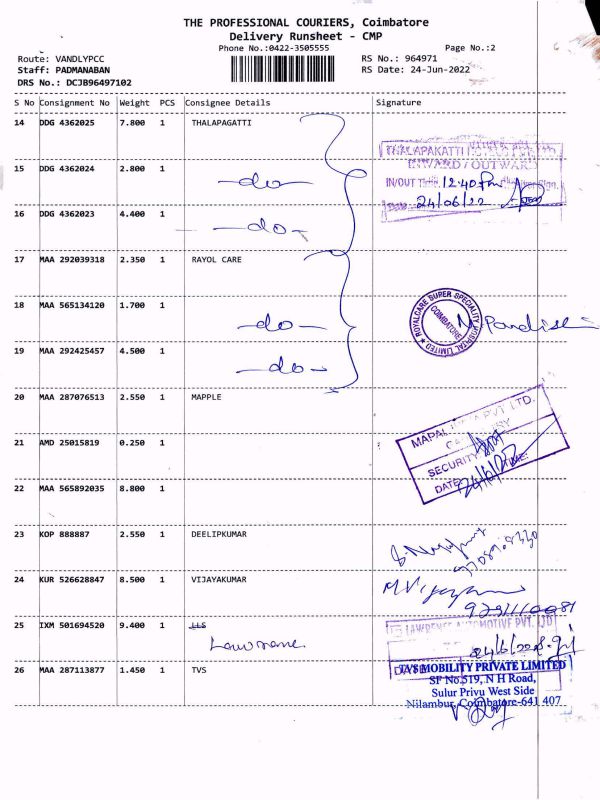 THE PROFESSIONAL COURIERS, Coimbatore
Delivery Runsheet - CMP
Phone No.:0422-3505555
Page No.:2
Route: VANDLYPCC
RS No.: 964971
Staff: PADMANABAN
RS Date: 24-Jun-2022
DRS No.: DCJB96497102
S No Consignment No Weight PCS Consignee Details Signature
14 DDG 4362025 7.800 1 THALAPAGATTI
THALAPAKATTI
INWARD / OUTWARD
15 DDG 4362024 2.800 1
-do-
IN/OUT Time 12.40 Pm
24/06/22
16 DDG 4362023 4.400 1
-do-
17 MAA 292039318 2.350 1 RAYOL CARE
18 MAA 565134120 1.700 1
-do-
ROYALCARE SUPER SPECIALITY HOSPITAL LIMITED
COIMBATORE
19 MAA 292425457 4.500 1
-do-
20 MAA 287076513 2.550 1 MAPPLE
PVT LTD.
21 AMD 25015819 0.250 1
SECURITY
DATE: TIME:
22 MAA 565892035 8.800 1
23 KOP 888887 2.550 1 DEELIPKUMAR
24 KUR 526628847 8.500 1 VIJAYAKUMAR
25 IXM 501694520 9.400 1 LLS
LAWRENCE AUTOMOTIVE PVT. LTD
24/6/22
26 MAA 287113877 1.450 1 TVS
TVS MOBILITY PRIVATE LIMITED
SF No.519, N H Road,
Sulur Privu West Side
Nilambur, Coimbatore-641 407